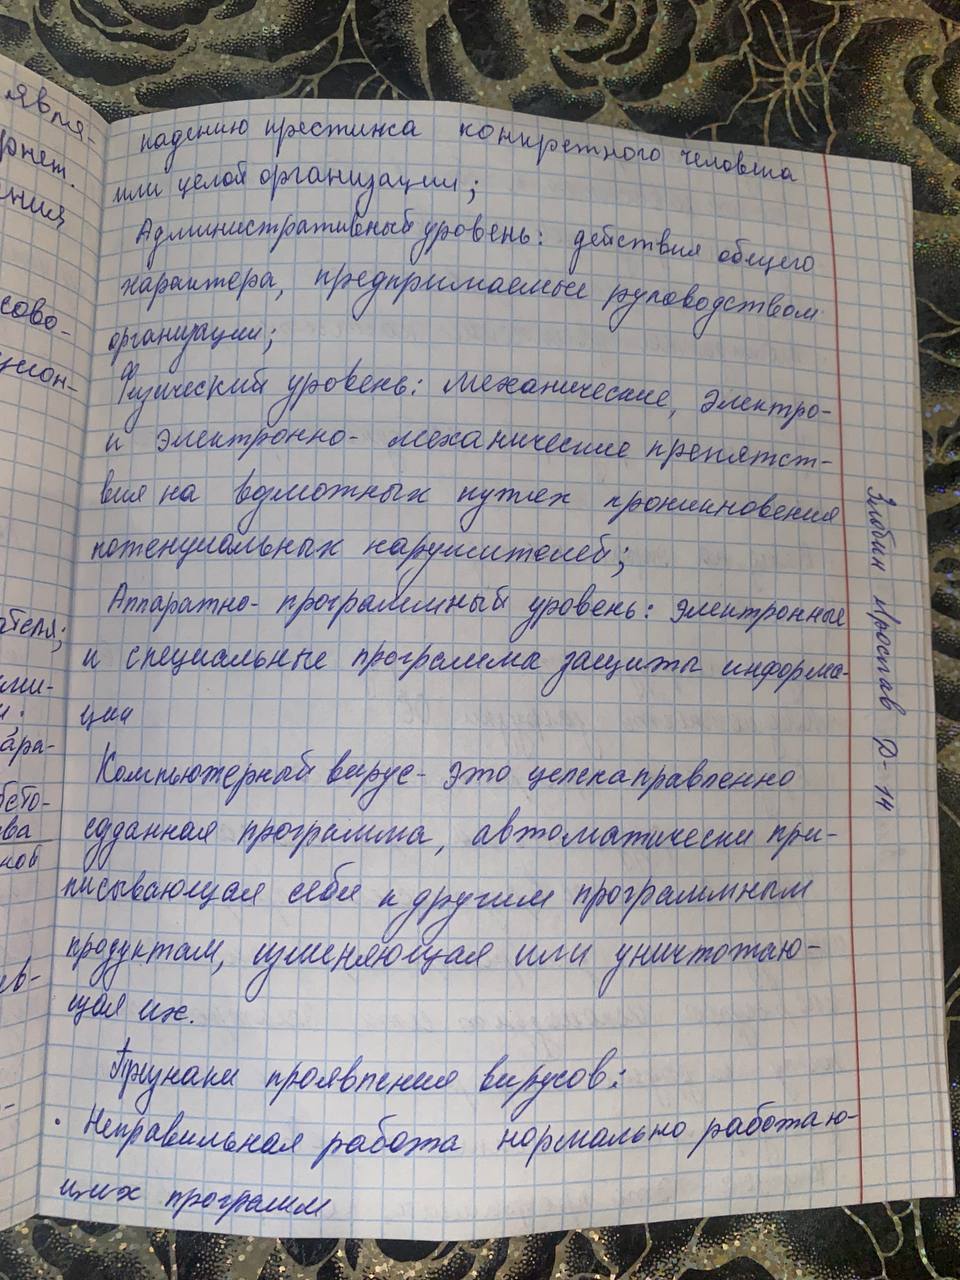 явля-
рнет.
ения
сово-
ацион-
ателя;
ара-
ва
ной
падению престижа конкретного человека
или целой организации;
Административный уровень: действия общего
характера, предпринимаемые руководством
организации;
Физический уровень: механические, электро-
и электронно- механические препятст-
вия на возможных путях проникновения
потенциальных нарушителей;
Аппаратно- программный уровень: электронные
и специальные программа защиты информа-
ции
Компьютерный вирус- это целенаправленно
созданная программа, автоматически при-
писывающая себя к другим программным
продуктам, изменяющая или уничтожаю-
щая их.
Признаки проявления вирусов:
· Неправильная работа нормально работаю-
щих программ
Злобин Д-14